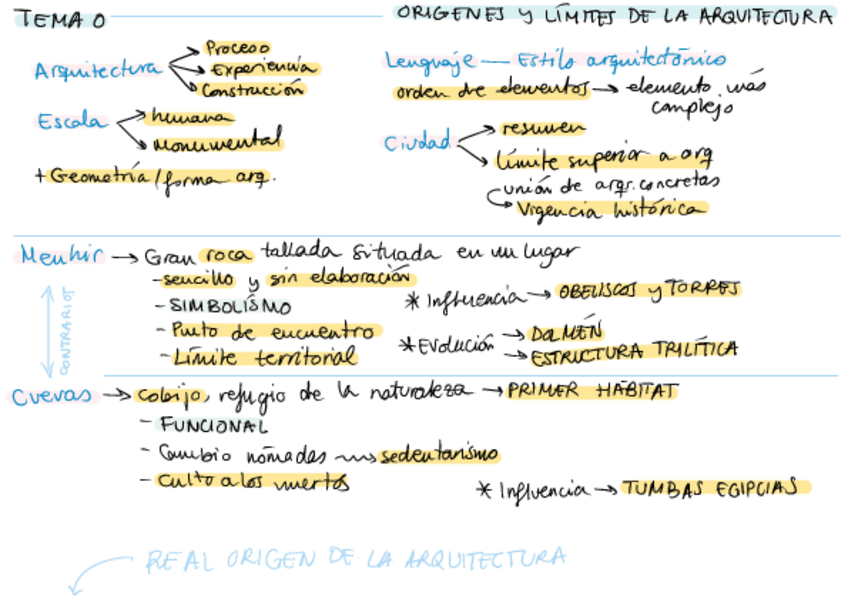 TEMA 0
ORIGENES Y LÍMITES DE LA ARQUITECTURA
Arquitectura → Proceso
→ Experiencia
→ Construcción
Escala → humana
→ Monumental
+ Geometría/forma arq.
Lenguaje — Estilo arquitectónico
orden de elementos → elemento más
complejo
Ciudad → resumen
→ Límite superior a arq
unión de arqs. concretas
→ Vigencia histórica
Menhir → Gran roca tallada situada en un lugar
- sencillo y sin elaboración
- SIMBOLÍSMO
- Punto de encuentro
- Límite territorial
* Influencia → OBELISCOS y TORRES
* Evolución → DOLMÉN
→ ESTRUCTURA TRILÍTICA
CONTRARIOS
Cuevas → cobijo, refugio de la naturaleza → PRIMER HÁBITAT
- FUNCIONAL
- Cambio nómadas → sedentarismo
- Culto a los muertos
* Influencia → TUMBAS EGIPCIAS
REAL ORIGEN DE LA ARQUITECTURA